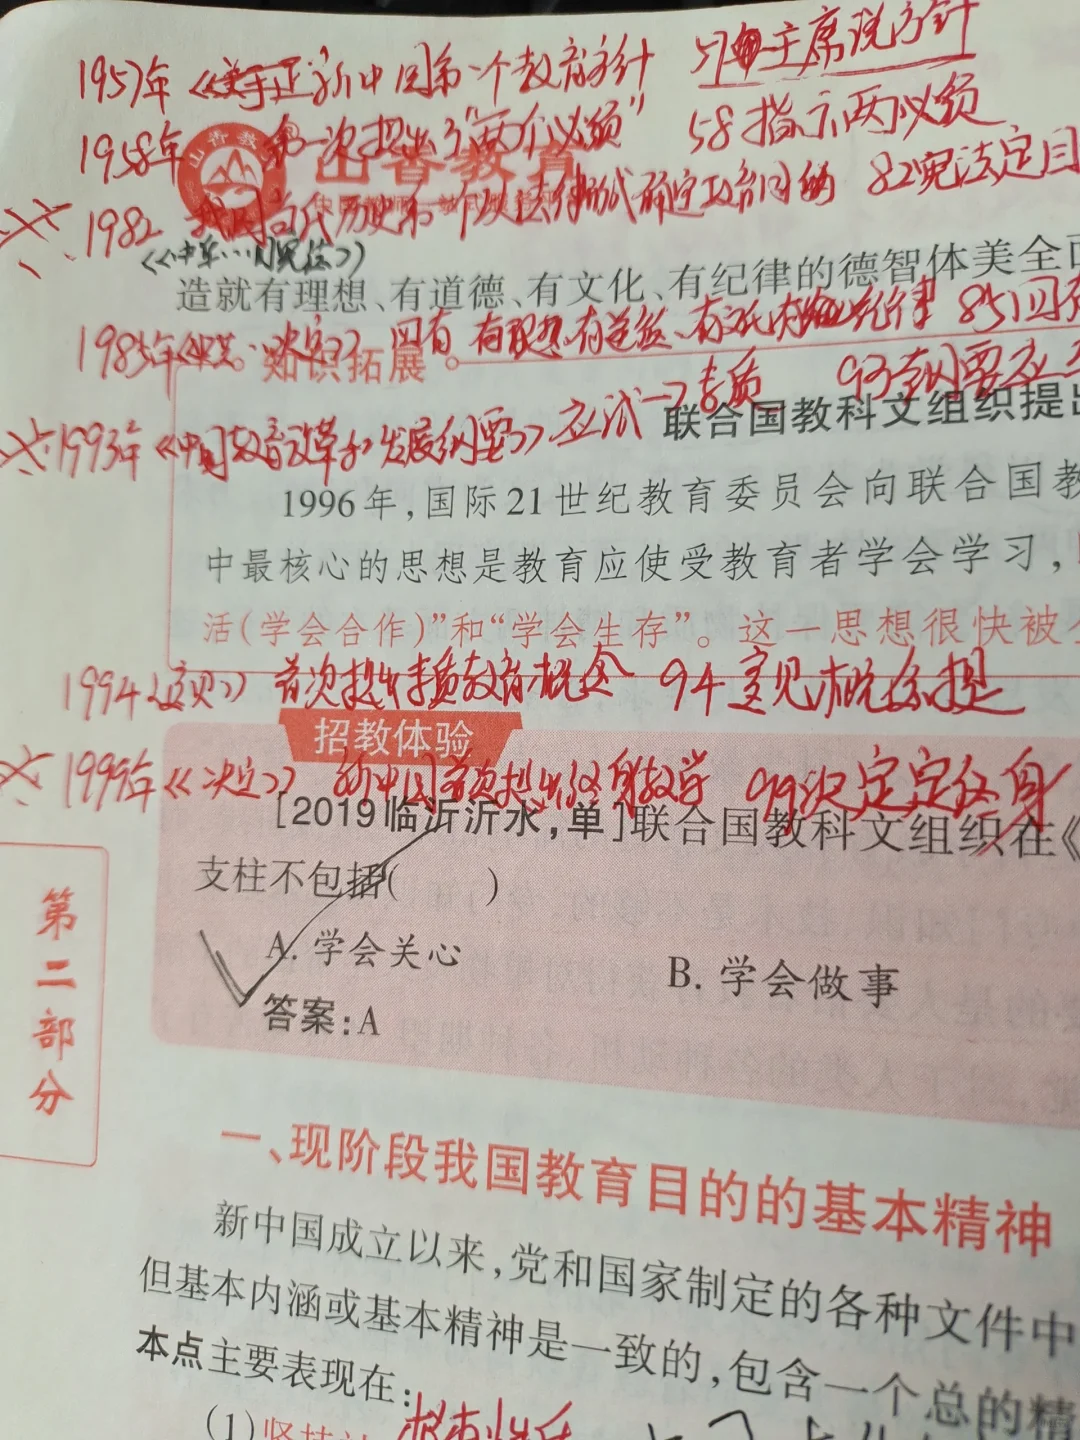 1957年《关于正》新中国第一个教育方针 57主席说方针
1958年 第一次提出了"两个必须" 58指示两必须
山香教育
1982 我国古代历史第一个以法律形式确定教育目的 82宪法定目
《中华…国宪法》
造就有理想、有道德、有文化、有纪律的德智体美全
1985年 决定》四有 有理想有道德、有文化有纪律 85四有
知识拓展
1993年《中国教育改革和发展纲要》应试→素质 93纲要应
联合国教科文组织提出
1996年,国际21世纪教育委员会向联合国教
中最核心的思想是教育应使受教育者学会学习,
活(学会合作)”和“学会生存”。这一思想很快被
1994《意见》 首次提出素质教育概念 94意见概念提
招教体验
1999年《决定》 新中国首次提出终身教学 99决定定终身
[2019临沂沂水,单]联合国教科文组织在《
支柱不包括( )
A. 学会关心
B. 学会做事
答案:A
第二部分
一、现阶段我国教育目的的基本精神
新中国成立以来,党和国家制定的各种文件中
但基本内涵或基本精神是一致的,包含一个总的精
本点主要表现在:
(1)坚持